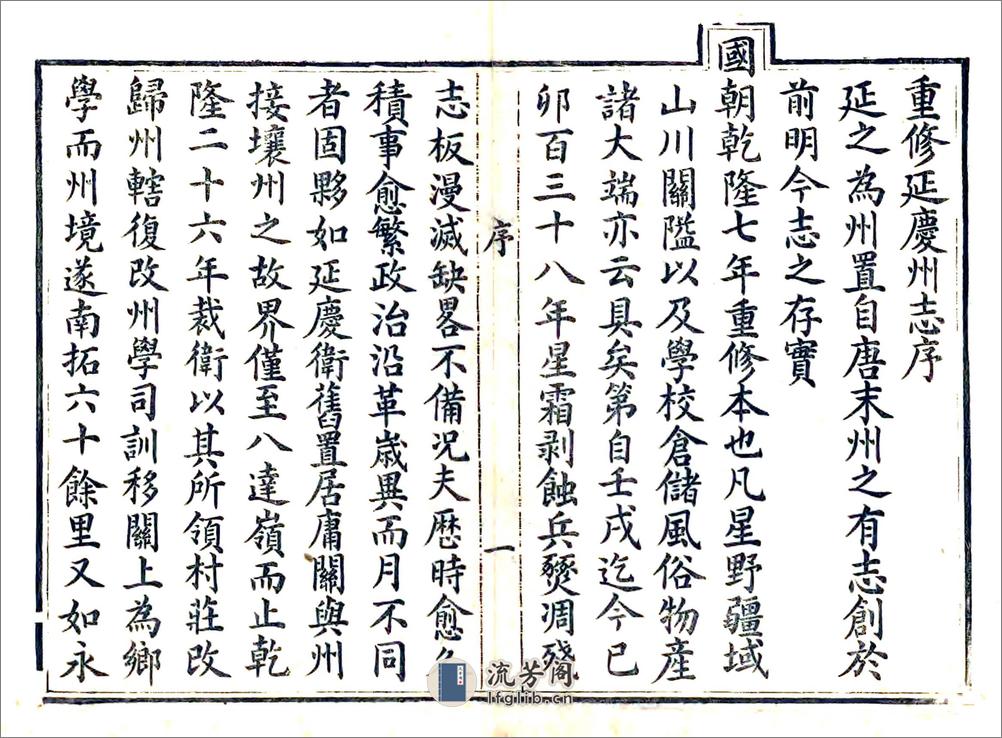 重修延慶州志序
延之為州置自唐末州之有志創於
前明今志之存實
國朝乾隆七年重修本也凡星野疆域
山川關隘以及學校倉儲風俗物產
諸大端亦云具矣第自壬戌迄今已
卯百三十八年星霜剥蝕兵燹凋殘
序
一
志板漫滅缺畧不備况夫歷時愈久
積事愈繁政治沿革歲異而月不同
者固夥如延慶衛舊置居庸關與州
接壤州之故界僅至八達嶺而止乾
隆二十六年裁衛以其所領村莊改
歸州轄復改州學司訓移關上為鄉
學而州境遂南拓六十餘里又如永
流芳阁
lfglib.cn